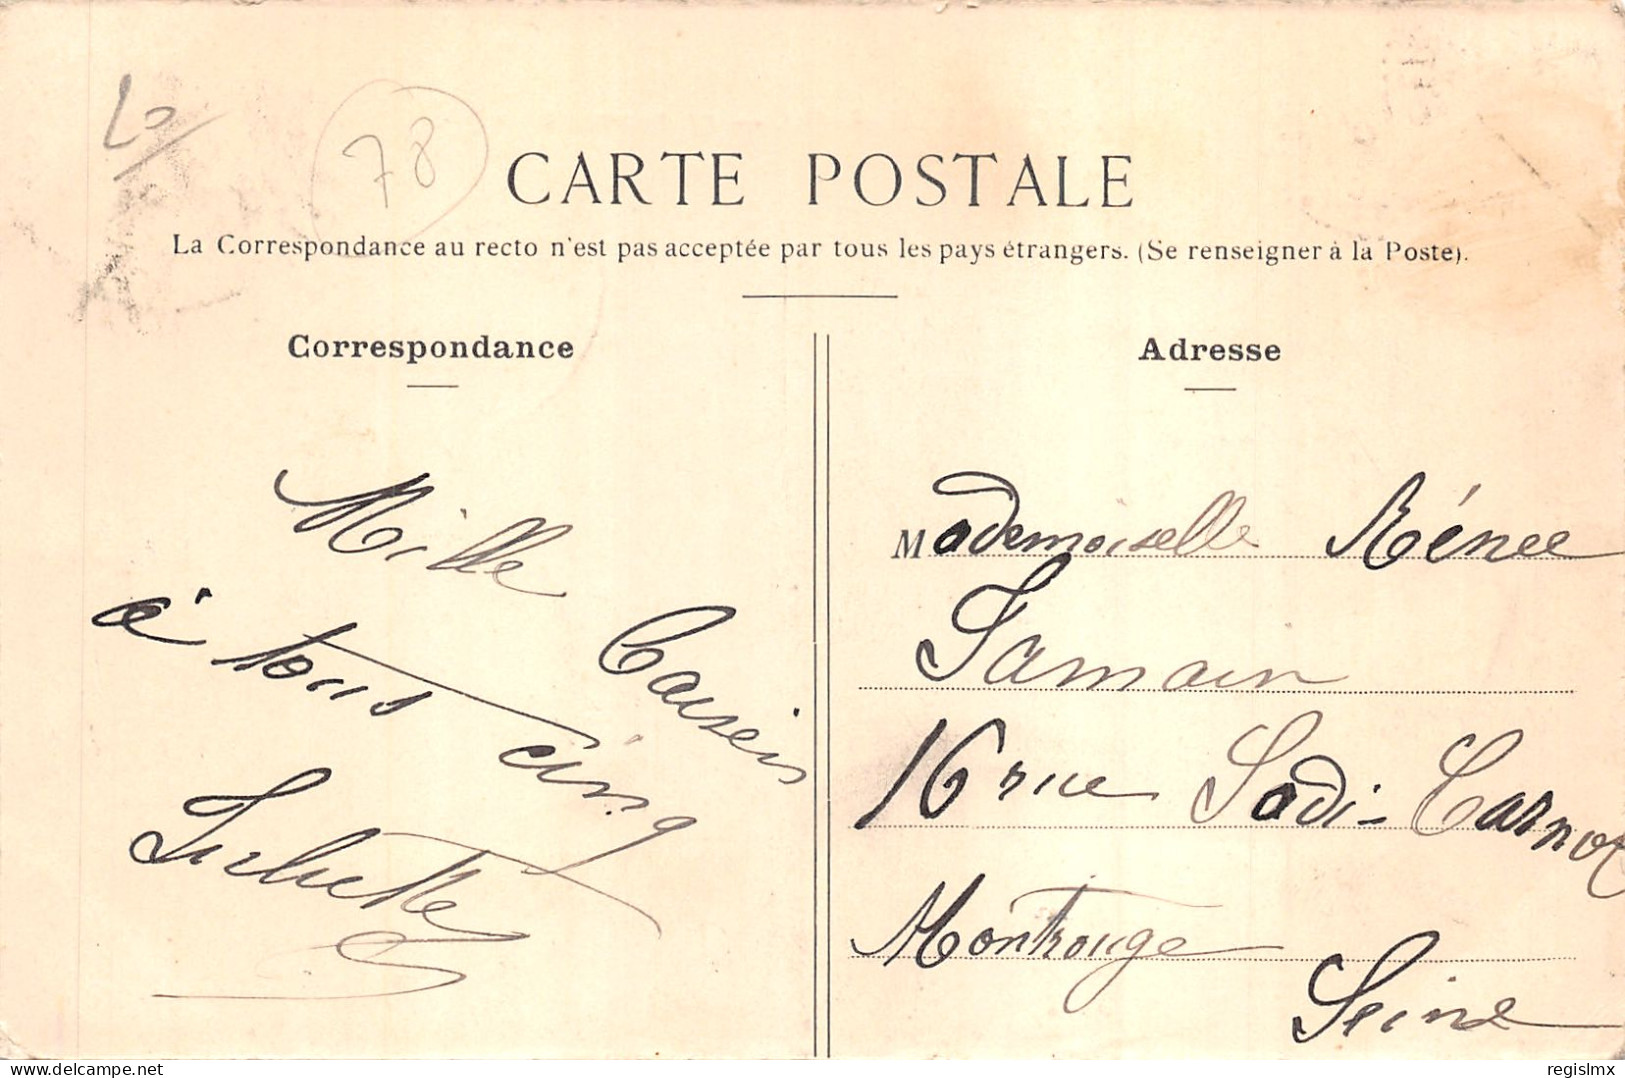 78
CARTE POSTALE
La Correspondance au recto n'est pas acceptée par tous les pays étrangers. (Se renseigner à la Poste).
Correspondance
Mille Baisers
à tous cinq
Juliette
Adresse
Mademoiselle Rénée
Samain
16 rue Sadi-Carnot
Montrouge
Seine
delcampe.net
regislmx